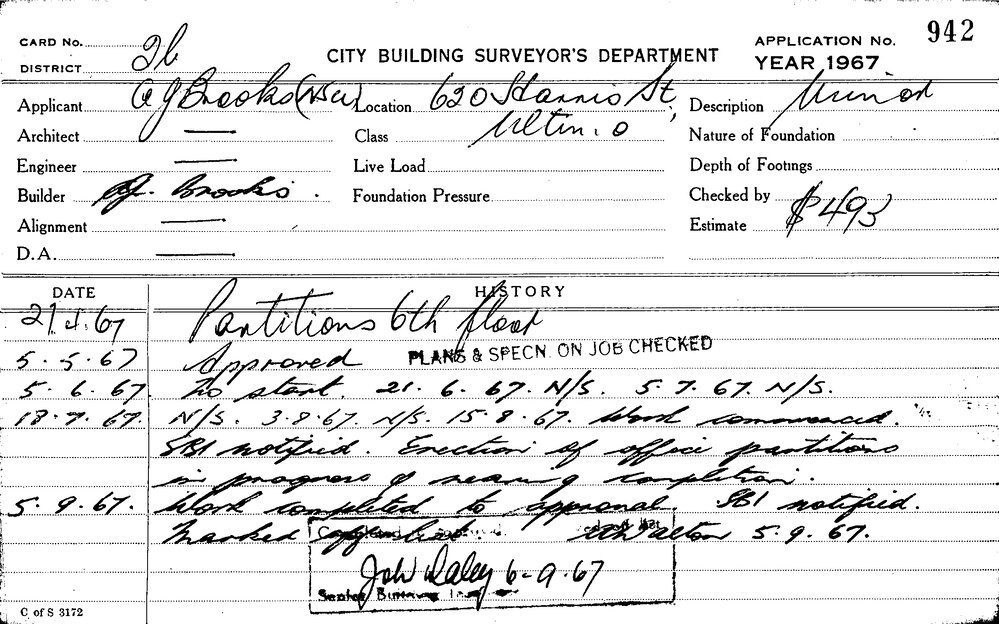 CARD No. 
DISTRICT 2b
CITY BUILDING SURVEYOR'S DEPARTMENT
APPLICATION No. 942
YEAR 1967
Applicant A J Brooks (NSW) Location 620 Harris St, Description Minor
Architect — Class Ultimo Nature of Foundation
Engineer — Live Load Depth of Footings
Builder A.J. Brooks. Foundation Pressure Checked by
Alignment — Estimate $493
D.A. —
DATE HISTORY
21.4.67 Partitions 6th floor
5.5.67 Approved PLANS & SPECN. ON JOB CHECKED
5.6.67. No start. 21.6.67. N/S. 5.7.67. N/S.
18.7.67. N/S. 3.8.67. N/S. 15.8.67. Work commenced.
SBI notified. Erection of office partitions
in progress & nearing completion.
5.9.67. Work completed to approval SBI notified.
Marked off 5.9.67.
John Daley 6-9-67
Senior Building
C of S 3172